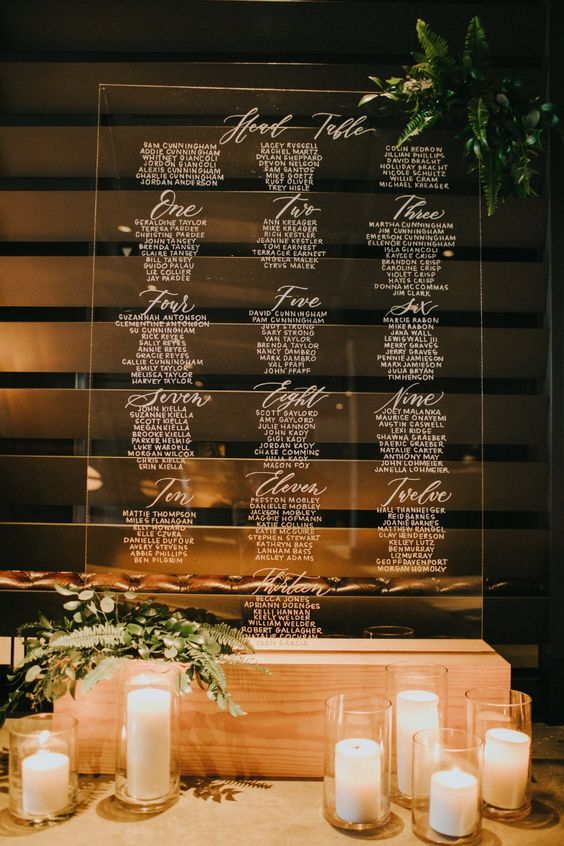 Head Table
SAM CUNNINGHAM
ADDIE CUNNINGHAM
WHITNEY GIANCOLI
JORDON GIANCOLI
ALEXIS CUNNINGHAM
CHARLIE CUNNINGHAM
JORDAN ANDERSON
LACEY RUSSELL
RACHEL MARTZ
DYLAN SHEPPARD
DEVON NELSON
SAM SANTOS
MIKE GOETZ
RUST OLIVER
TREY HISLE
COLIN REDROW
JILLIAN PHILLIPS
DAVID BRACHT
HOLLIDAY BRACHT
NICOLE SCHULTZ
WILLIE CRAM
MICHAEL KREAGER
One
GERALDINE TAYLOR
TERESA PARDEE
CHRISTINE PARDEE
JOHN TANSEY
BRENDA TANSEY
CLAIRE TANSEY
BILL TANSEY
GUIDO PALAU
LIZ COLLIER
JAY PARDEE
Two
ANN KREAGER
MIKE KREAGER
RICH KESTLER
JEANINE KESTLER
TOM EARNEST
TERRACER EARNEST
ANGELA MALEK
CYRUS MALEK
Three
MARTHA CUNNINGHAM
JIM CUNNINGHAM
EMERSON CUNNINGHAM
ELLENOR CUNNINGHAM
ISLA GIANCOLI
KAYCEE CRISP
BRANDON CRISP
CAROLINE CRISP
VIOLET CRISP
HAYES CRISP
DONNA MCCOMMAS
JIM CLARK
Four
SUZANNAH ANTONSON
CLEMENTINE ANTONSON
SU CUNNINGHAM
RICK REYES
SALLY REYES
ANNIE REYES
GRACIE REYES
CALLIE CUNNINGHAM
EMILY TAYLOR
MELISSA TAYLOR
HARVEY TAYLOR
Five
DAVID CUNNINGHAM
PAM CUNNINGHAM
JUDY STRONG
GARY STRONG
VAN TAYLOR
BRENDA TAYLOR
NANCY DAMBRO
MARK DAMBRO
VAL PFAFF
JOHN PFAFF
Six
MARCIE RABON
MIKE RABON
JANA WALL
LEWIS WALL III
MERRY GRAVES
JERRY GRAVES
PENNIE JAMIESON
MARK JAMIESON
JULIA BRYAN
TIM HENSON
Seven
JOHN KIELLA
SUZANNE KIELLA
SCOTT KIELLA
MEGAN KIELLA
BROOKE KIELLA
PARKER HELMIG
LUKE WARDELL
MORGAN WILCOX
CHRIS KIELLA
ERIN KIELLA
Eight
SCOTT GAYLORD
AMY GAYLORD
JULIE HANNON
JOHN KADY
GIGI KADY
JORDAN KADY
CHASE COMMINGS
JULIA KADY
MASON FOX
Nine
JOEY MALANKA
MAURICE ONAYEMI
AUSTIN CASWELL
LEXI RIDGE
SHAWNA GRAEBER
DAERIC GRAEBER
NATALIE CARTER
ANTHONY MAY
JOHN LOHMEIER
JANELLA LOHMEIER
Ten
MATTIE THOMPSON
MILES FLANAGAN
ELLY HOWARD
ELLE CZURA
DANIELLE DUFOUR
AVERY STEVENS
ABBIE PHILLIPS
BEN PILGRIM
Eleven
PRESTON MOBLEY
DANIELLE MOBLEY
JACKSON MOBLEY
MAGGIE HOFMANN
KATIE COLLINS
KATIE MCGUIRE
STEPHEN STEWART
KATHRYN BASS
LANHAM BASS
ANSLEY ADAMS
Twelve
HALL THANHEISER
REID BARNES
JOANIE BARNES
MATTHEW RANGEL
CLAY HENDERSON
KELSEY LUTZ
BEN MURRAY
LIZ MURRAY
GEOFF DAVENPORT
MORGAN HOMOKY
Thirteen
BECCA JONES
ADRIANN DOENGES
KELLI HANNAN
KEELY WEBER
WILLIAM WEBER
ROBERT GALLAGHER
NATALIE COCHRAN
JUAN GARCIA